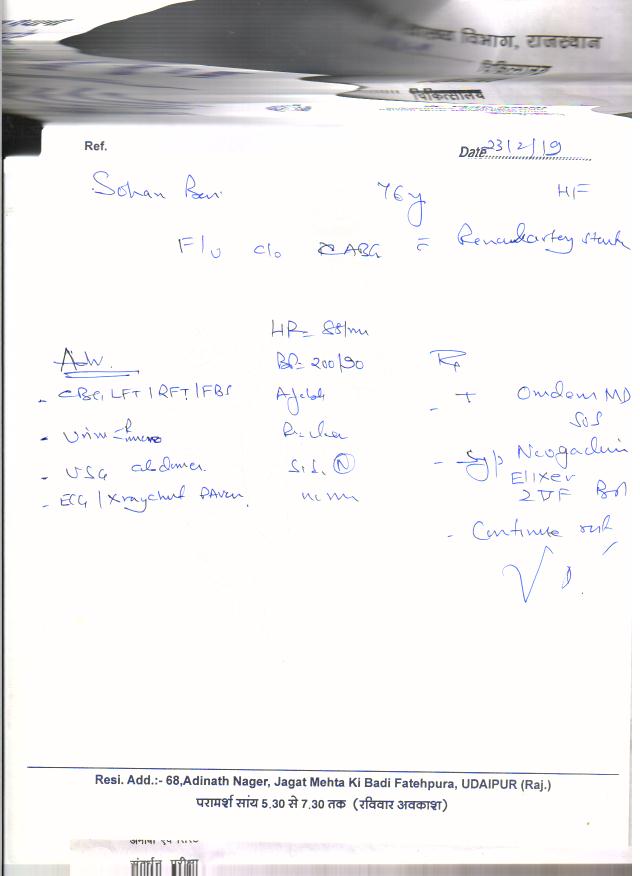 विभाग, राजस्थान
चिकित्सालय
चिकित्सालय
Ref. Date 23/2/19
Sohan 76y HF
F/U c/o CABG c̄ Renal artery stent
HR= 88/mi
Adv. BP= 200/90 Rx
- CBC, LFT / RFT / FBS Afebrile - T Omdem MD
SOS
- Urine R/micro R- clear
- Syp Neogadine
- USG abdomen. S1S2 (N) Elixer
2TSF BD
- ECG / Xray chest PA view.
- Continue rest
Resi. Add.:- 68,Adinath Nager, Jagat Mehta Ki Badi Fatehpura, UDAIPUR (Raj.)
परामर्श सांय 5.30 से 7.30 तक (रविवार अवकाश)